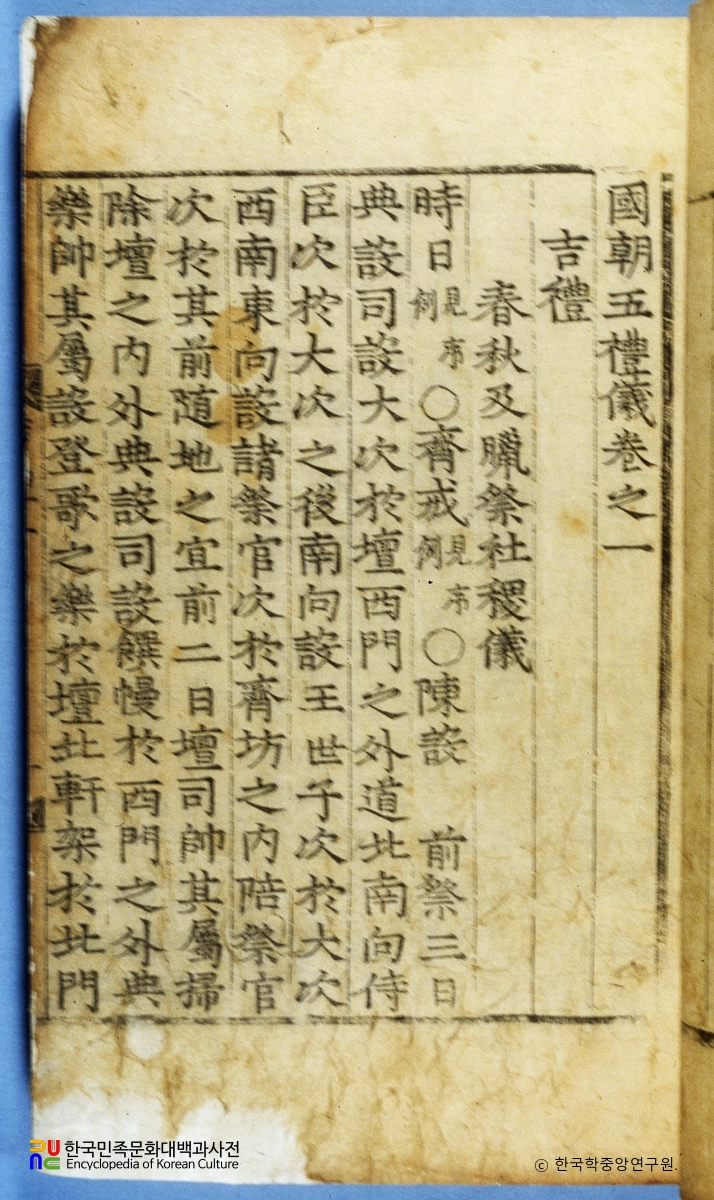 國朝五禮儀卷之一
吉禮
春秋及臘祭社稷儀
時日見序例○齊戒見序例○陳設 前祭三日
典設司設大次於壇西門之外道北南向侍
臣次於大次之後南向設王世子次於大次
西南東向設諸祭官次於齊坊之内陪祭官
次於其前随地之宜前二日壇司帥其屬掃
除壇之内外典設司設饌幔於西門之外典
樂帥其屬設登歌之樂於壇北軒架於北門
한국민족문화대백과사전
Encyclopedia of Korean Culture
ⓒ 한국학중앙연구원.